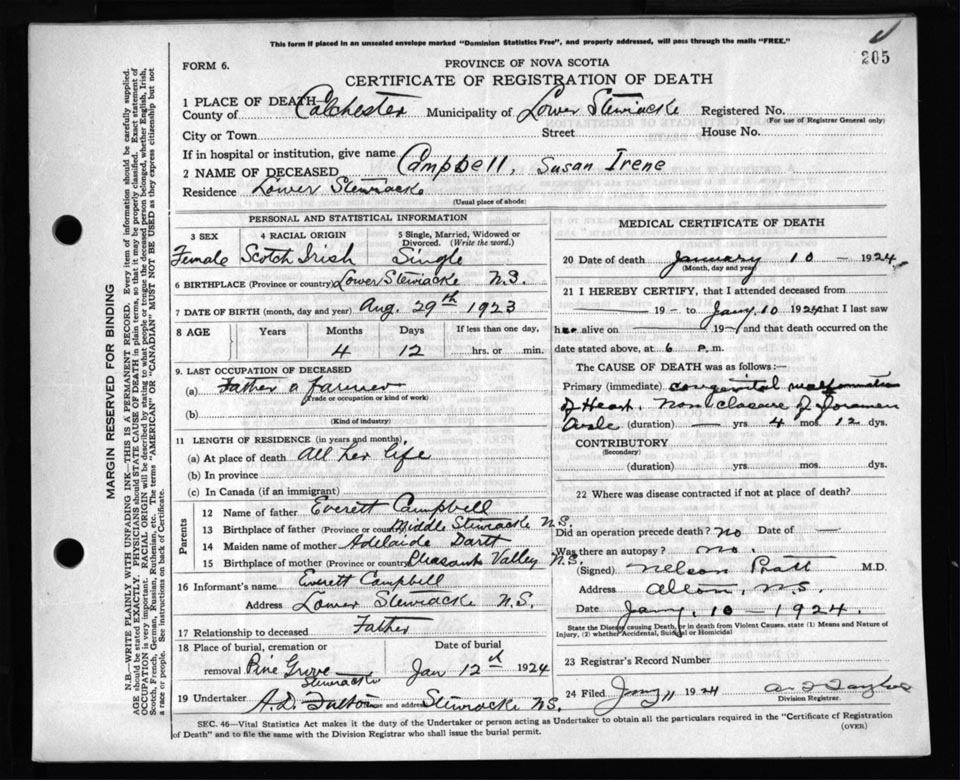 This form if placed in an unsealed envelope marked "Dominion Statistics Free", and properly addressed, will pass through the mails "FREE."
205
FORM 6.
PROVINCE OF NOVA SCOTIA
CERTIFICATE OF REGISTRATION OF DEATH
1 PLACE OF DEATH—
County of Colchester Municipality of Lower Stewiacke Registered No.
(For use of Registrar General only)
City or Town Street House No.
If in hospital or institution, give name
2 NAME OF DECEASED Campbell, Susan Irene
Residence Lower Stewiacke
(Usual place of abode)
MARGIN RESERVED FOR BINDING
N.B.—WRITE PLAINLY WITH UNFADING INK—THIS IS A PERMANENT RECORD. Every item of information should be carefully supplied.
AGE should be stated EXACTLY. PHYSICIANS should STATE CAUSE OF DEATH in plain terms, so that it may be properly classified. Exact statement of
OCCUPATION is very important. RACIAL ORIGIN will be described by stating to what people or tongue the deceased person belonged, whether English, Irish,
Scotch, French, German, Russian, Ruthenian, etc. The terms "AMERICAN" OR "CANADIAN" MUST NOT BE USED as they express citizenship but not
a race or people. See instructions on back of Certificate.
PERSONAL AND STATISTICAL INFORMATION
3 SEX 4 RACIAL ORIGIN 5 Single, Married, Widowed or
Divorced. (Write the word.)
Female Scotch Irish Single
6 BIRTHPLACE (Province or country) Lower Stewiacke N.S.
7 DATE OF BIRTH (month, day and year) Aug. 29th 1923
8 AGE Years Months Days If less than one day,
4 12 hrs. or min.
9. LAST OCCUPATION OF DECEASED
(a) Father a farmer
(Trade or occupation or kind of work)
(b)
(Kind of industry)
11 LENGTH OF RESIDENCE (in years and months)
(a) At place of death all her life
(b) In province
(c) In Canada (if an immigrant)
Parents
12 Name of father Everett Campbell
13 Birthplace of father (Province or country) Middle Stewiacke N.S.
14 Maiden name of mother Adelaide Dartt
15 Birthplace of mother (Province or country) Pleasant Valley N.S.
16 Informant's name Everett Campbell
Address Lower Stewiacke N.S.
17 Relationship to deceased Father
18 Place of burial, cremation or Date of burial
removal Pine Grove Jan 12th 1924
Stewiacke
19 Undertaker A.D. Fulton Name and address Stewiacke N.S.
MEDICAL CERTIFICATE OF DEATH
20 Date of death January 10 – 1924
(Month, day and year)
21 I HEREBY CERTIFY, that I attended deceased from
19 – to Jany. 10 1924 that I last saw
her alive on 19 – and that death occurred on the
date stated above, at 6 P.m.
The CAUSE OF DEATH was as follows:—
Primary (immediate) congenital malformation
of Heart. Non closure of foramen
Ovale (duration) — yrs. 4 mos. 12 dys.
CONTRIBUTORY
(Secondary)
(duration) yrs. mos. dys.
22 Where was disease contracted if not at place of death?
Did an operation precede death? no Date of
Was there an autopsy? no.
(Signed) Nelson Pratt M.D.
Address Alton, N.S.
Date Jany. 10 – 1924.
State the Disease causing Death, or in death from Violent Causes, state (1) Means and Nature of
Injury, (2) whether Accidental, Suicidal or Homicidal
23 Registrar's Record Number
24 Filed Jany 11 1924
Division Registrar
SEC. 46—Vital Statistics Act makes it the duty of the Undertaker or person acting as Undertaker to obtain all the particulars required in the "Certificate of Registration
of Death" and to file the same with the Division Registrar who shall issue the burial permit.
(OVER)